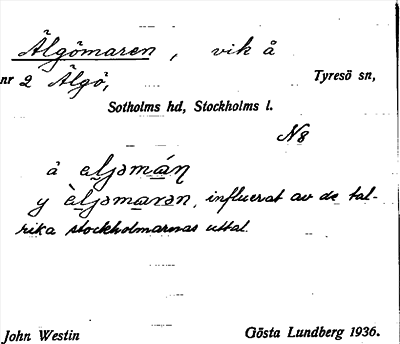 Älgömaren, vik å
nr 2 Älgö, Tyresö sn,
Sotholms hd, Stockholms l.
N8
å ɛljəmán
y ɛ̀ljəmarən, influerat av de tal-
rika stockholmarnas uttal.
John Westin Gösta Lundberg 1936.